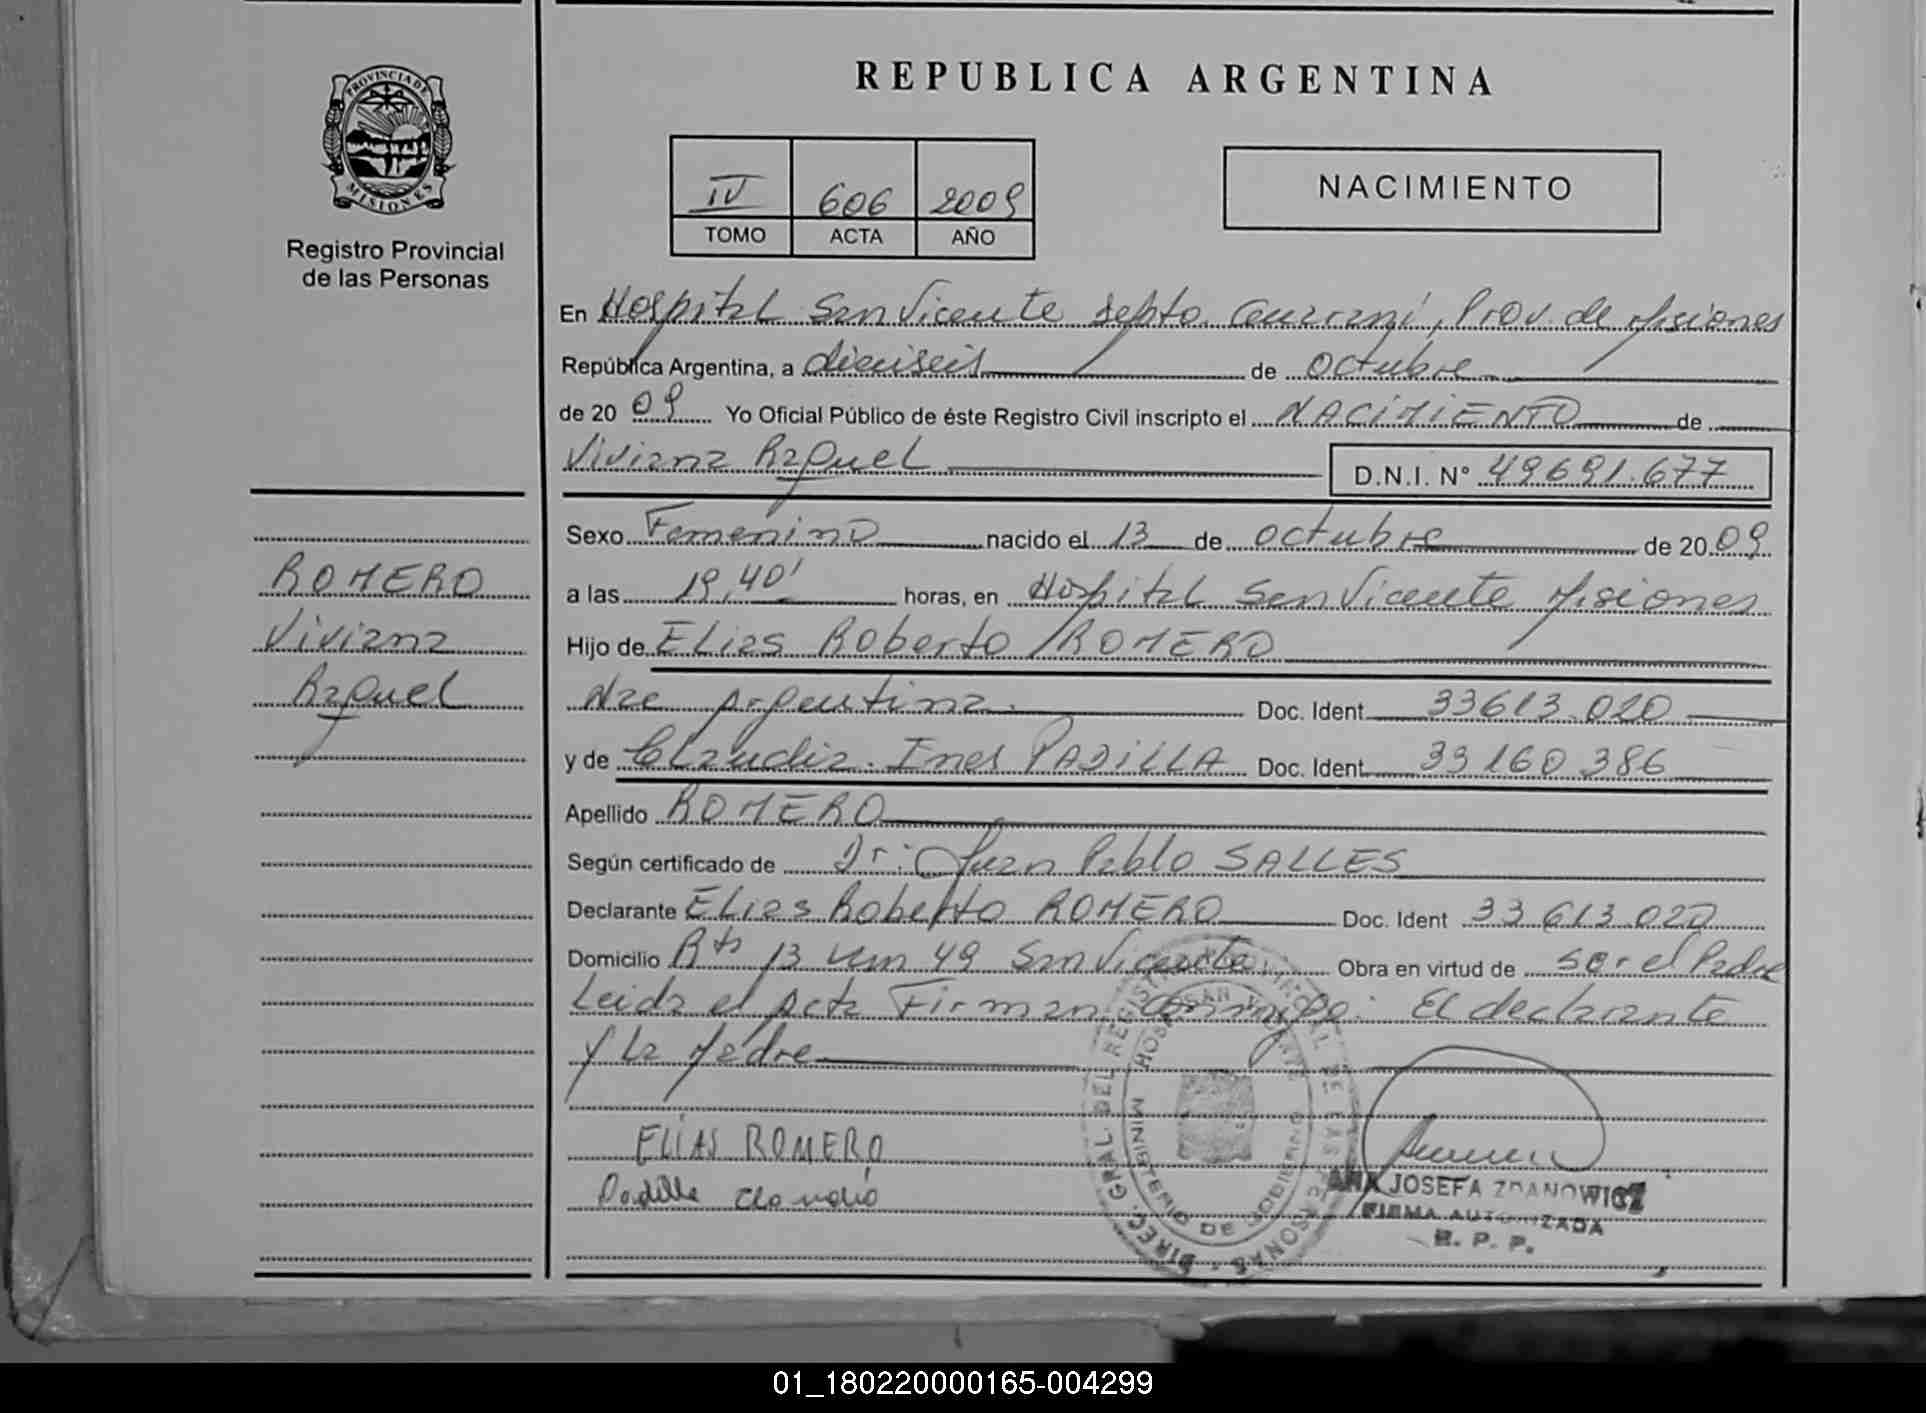 REPUBLICA ARGENTINA
PROVINCIA DE
MISIONES
Registro Provincial
de las Personas
IV 606 2009
TOMO ACTA AÑO
NACIMIENTO
En Hospital San Vicente depto. Guarani, Prov. de Misiones
República Argentina, a dieciseis de octubre
de 2009 Yo Oficial Público de éste Registro Civil inscripto el NACIMIENTO de
Viviana Raquel D.N.I. N° 49691.677
Sexo Femenino nacido el 13 de octubre de 2009
a las 19,40' horas, en Hospital San Vicente Misiones
Hijo de Elias Roberto ROMERO
Nac Argentina. Doc. Ident. 33613.020
y de Claudia. Ines PADILLA Doc. Ident. 33160386
Apellido ROMERO
Según certificado de Dr: Juan Pablo SALLES
Declarante Elias Roberto ROMERO Doc. Ident 33.613.020
Domicilio Rta 13 km 49 San Vicente Obra en virtud de ser el Padre
Leida el Acta Firman conmigo: El declarante
y la Madre
ROMERO
Viviana
Raquel
ELIAS ROMERO
Padilla Claudia
DIREC. GRAL. DEL REGISTRO PROVINCIAL DE LAS PERSONAS
HOSP. SAN VICENTE
MINISTERIO DE GOBIERNO
ANA JOSEFA ZDANOWICZ
FIRMA AUTORIZADA
R. P. P.
01_180220000165-004299